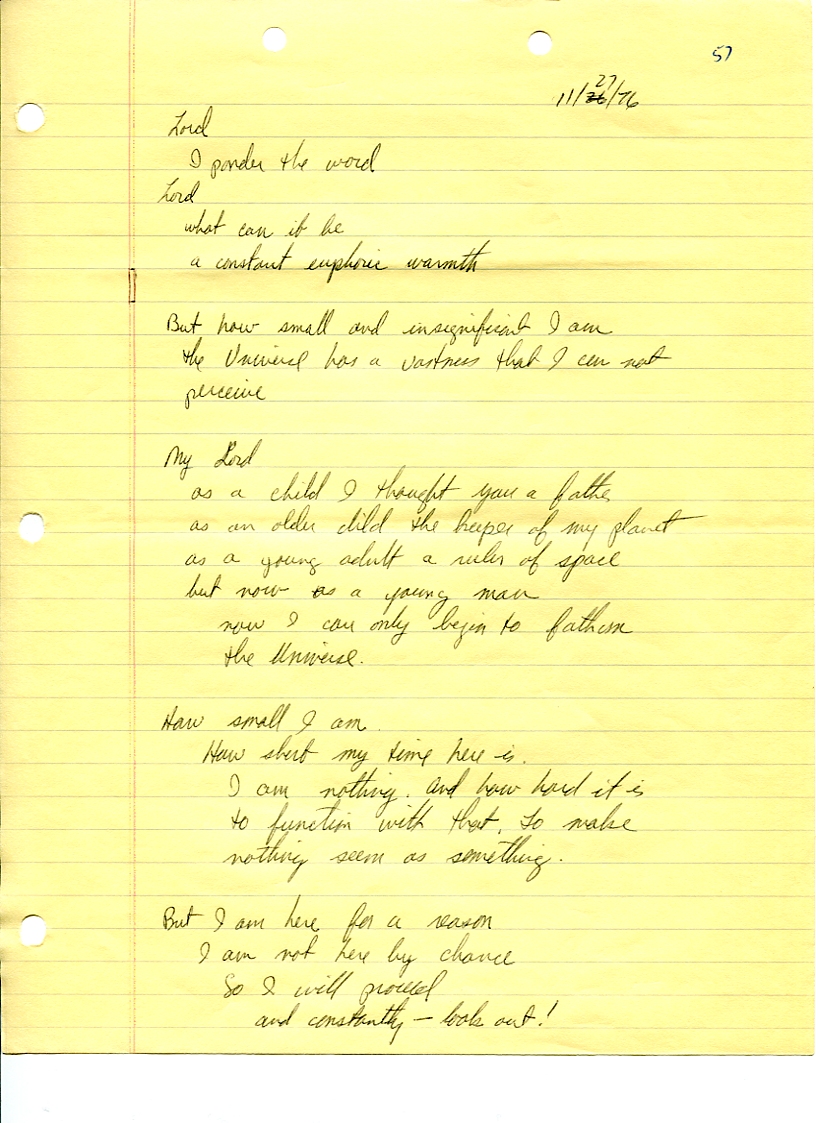 57
11/27/76
Lord
I ponder the word
Lord
what can it be
a constant euphoric warmth
But how small and insignificant I am
the Universe has a vastness that I can not
perceive
My Lord
as a child I thought you a father
as an older child the keeper of my planet
as a young adult a ruler of space
but now as a young man
now I can only begin to fathom
the Universe.
How small I am.
How short my time here is.
I am nothing. And how hard it is
to function with that. To make
nothing seem as something.
But I am here for a reason
I am not here by chance
So I will proceed
and constantly – look out!